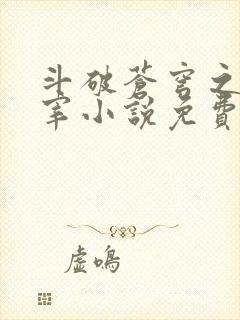 斗破蒼穹之
宰小說免費
虛鳴